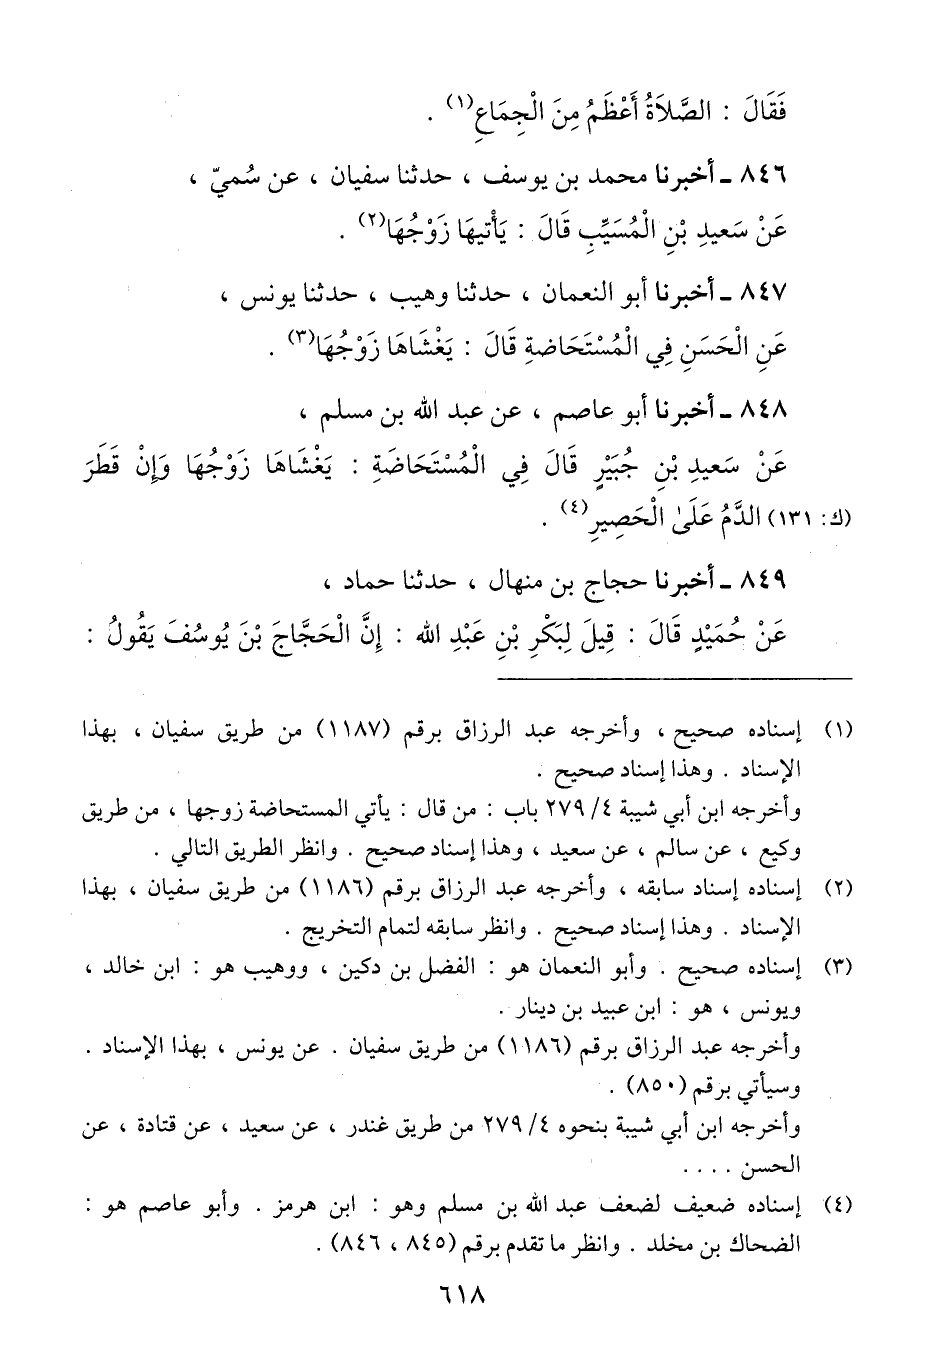 فَقَالَ : الصَّلاَةُ أَعْظَمُ مِنَ الْجِمَاعِ(١) .
٨٤٦ ـ أخبرنا محمد بن يوسف ، حدثنا سفيان ، عن سُميّ ،
عَنْ سَعيدِ بْنِ الْمُسَيِّبِ قَالَ : يَأْتِيهَا زَوْجُهَا(٢) .
٨٤٧ ـ أخبرنا أبو النعمان ، حدثنا وهيب ، حدثنا يونس ،
عَنِ الْحَسَنِ فِي الْمُسْتَحَاضةِ قَالَ : يَغْشَاهَا زَوْجُهَا(٣) .
٨٤٨ ـ أخبرنا أبو عاصم ، عن عبد الله بن مسلم ،
عَنْ سَعيدِ بْنِ جُبَيْرٍ قَالَ فِي الْمُسْتَحَاضَةِ : يَغْشَاهَا زَوْجُهَا وَإِنْ قَطَرَ
(ك: ١٣١) الدَّمُ عَلَىٰ الْحَصِيرِ(٤) .
٨٤٩ ـ أخبرنا حجاج بن منهال ، حدثنا حماد ،
عَنْ حُمَيْدٍ قَالَ : قِيلَ لِبَكْرِ بْنِ عَبْدِ الله : إِنَّ الْحَجَّاجَ بْنَ يُوسُفَ يَقُولُ :
(١) إسناده صحيح ، وأخرجه عبد الرزاق برقم (١١٨٧) من طريق سفيان ، بهذا
الإسناد . وهذا إسناد صحيح .
وأخرجه ابن أبي شيبة ٤/ ٢٧٩ باب : من قال : يأتي المستحاضة زوجها ، من طريق
وكيع ، عن سالم ، عن سعيد ، وهذا إسناد صحيح . وانظر الطريق التالي .
(٢) إسناده إسناد سابقه ، وأخرجه عبد الرزاق برقم (١١٨٦) من طريق سفيان ، بهذا
الإسناد . وهذا إسناد صحيح . وانظر سابقه لتمام التخريج .
(٣) إسناده صحيح . وأبو النعمان هو : الفضل بن دكين ، ووهيب هو : ابن خالد ،
ويونس ، هو : ابن عبيد بن دينار .
وأخرجه عبد الرزاق برقم (١١٨٦) من طريق سفيان . عن يونس ، بهذا الإسناد .
وسيأتي برقم (٨٥٠) .
وأخرجه ابن أبي شيبة بنحوه ٤/ ٢٧٩ من طريق غندر ، عن سعيد ، عن قتادة ، عن
الحسن . . . .
(٤) إسناده ضعيف لضعف عبد الله بن مسلم وهو : ابن هرمز . وأبو عاصم هو :
الضحاك بن مخلد . وانظر ما تقدم برقم (٨٤٥ ، ٨٤٦) .
٦١٨